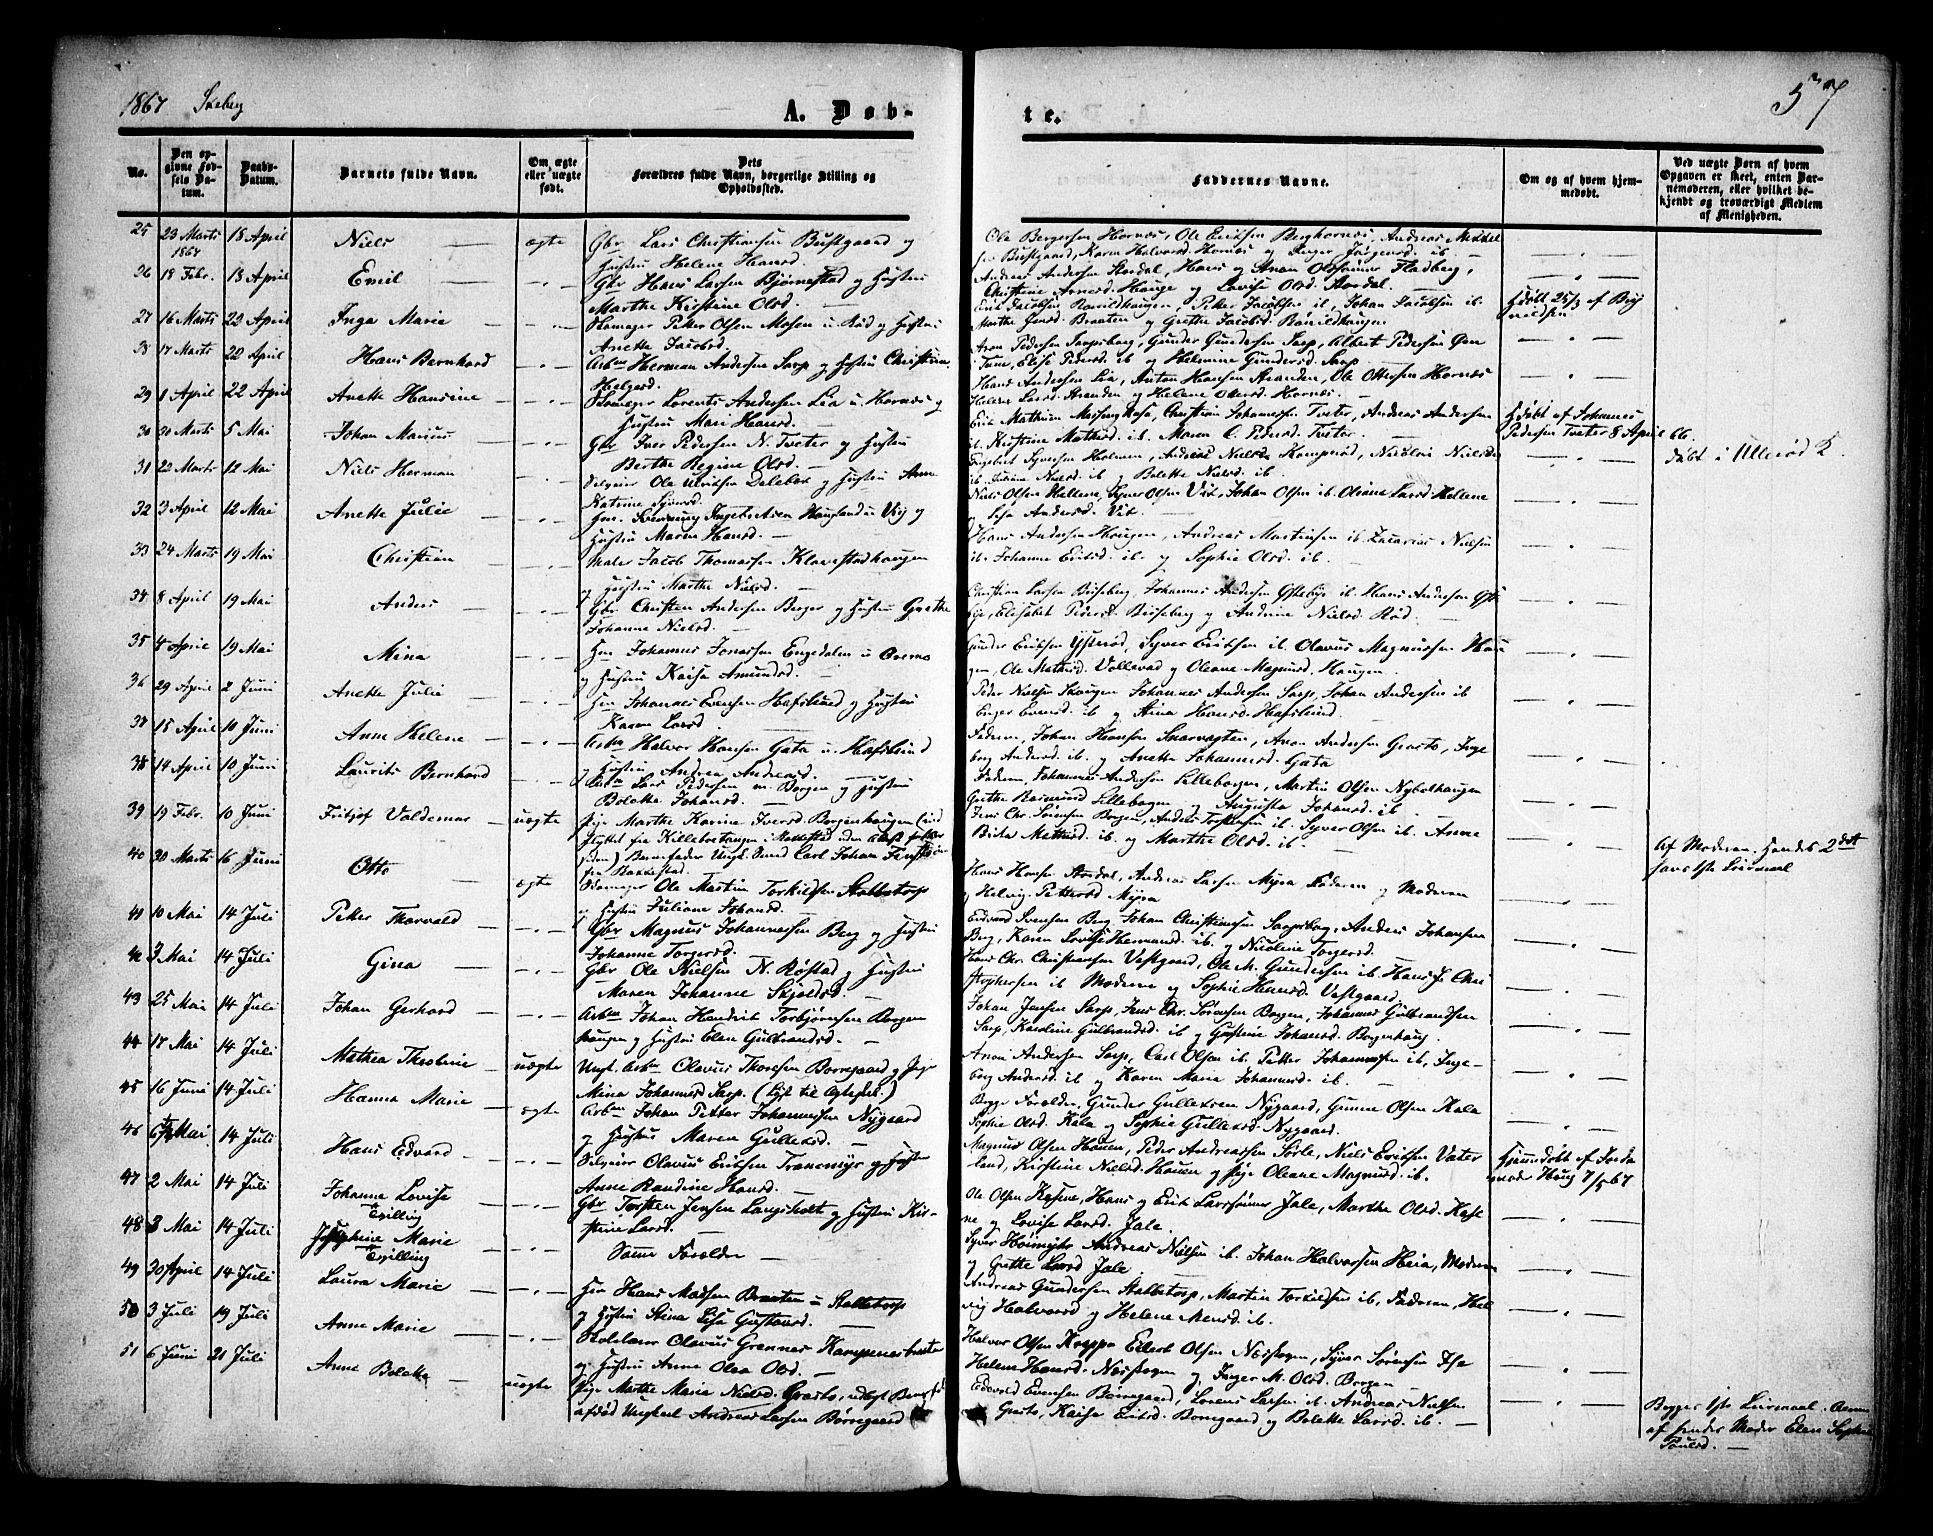 1867 Skeberg
A. Døb-
te.
57
No.
Den opgivne Fødsels Datum.
Daabs-Datum.
Barnets fulde Navn.
Om ægte eller uægte født.
Dets Forældres fulde Navn, borgerlige Stilling og Opholdssted.
Faddernes Navne.
Om og af hvem hjemmedøbt.
Ved uægte Børn af hvem Opgaven er skeet, enten Barnemoderen, eller hvilket bekjendt og troværdigt Medlem af Menigheden.
25 23 Marts 1867 18 April Niels — ægte Gbr Lars Christiansen Bustgaard og
Hustru Helene Hansd. —
Ole Bergersen Hornæs, Ole Eriksen Berghornæs, Andreas
Bustgaard, Karen Halvorsd. Hornæs og Inger Jørgensd. ib. —
26 18 Febr. 18 April Emil — Gbr Hans Larsen Bjørnestad og Hustru
Marthe Kirstine Olsd. —
Andreas Andersen Stordal, Hans og Anon Olssønner Fladberg,
Christine Arnesd. Hauge og Lovise Olsd. Stordal. —
27 16 Marts 22 April Inga Marie — Petter Olsen Mosen u. Rød og Hustru
Anette Jacobsd. —
Erik Jacobsen Rønildhaugen, Peter Jacobsen ib., Johan Jacobsen ib.
Marthe Jensd. Braaten og Grethe Jacobsd. Rønildhaugen
Hjdøbt 25/3 af
28 17 Marts 20 April Hans Bernhard Arbm Herman Andersen Sarp og Hustru Christiane
Helgesd.
Aron Pedersen Sarpsborg, Gunder Gundersen Sarp, Albert Pedersen
Tune, Elise Pedersd. ib og Helmine Gundersd. Sarp —
29 1 April 22 April Anette Hansine — Lorents Andersen Lia u. Hornæs og
Hustru Mari Hansd.
Hans Andersen Lia, Anton Hansen Stranden, Ole Ottersen Hornæs
Helene Larsd. Stranden og Helene Ottersd. Hornæs. —
30 30 Marts 5 Mai Johan Marius — Gbr Iver Pedersen N. Tveter og Hustru
Berthe Regine Olsd. —
Christian Johannessen Tveter, Andreas Andersen
ib. Kirstine Mathisd. ib. Maren C. Pedersd. Tveter. —
Hjdøbt af Johannes
Pedersen Tveter 8 April 66.
31 22 Marts 12 Mai Niels Herman Ole Ulriksen Delebek og Hustru Anne
Katrine
Engebret Syversen Holmen, Andreas Nielsen Kamperød, Nicolai Nielsen
ib. Juliane Nielsd. ib og Bolette Nielsd. ib.
døbt i Ullerød K.
32 3 April 12 Mai Anette Julie — Hm. Svenning Ingebretsen Haugland u Vig og
Hustru Maren Hansd. —
Niels Olsen Hellene, Syver Olsen Vit, Johan Olsen ib. Oleane Larsd. Hellene
Lisa Andersd. Vit. —
33 24 Marts 19 Mai Christian Maler Jacob Thomassen Klavestadhaugen
og Hustru Marthe Nielsd. —
Hans Andersen Haugen, Andreas Martinsen ib. Zacarias Nielsen
ib. Johanne Eriksd. ib. og Sophie Olsd. ib
34 8 April 19 Mai Anders — Gbr Christen Andersen Berger og Hustru Grethe
Johanne Nielsd. —
Christian Larsen Bisseberg, Johannes Andersen Ystebye ib Hans Andersen Yste
bye, Elisabet Pedersd. Bisseberg og Andrine Nielsd. Rød.
35 4 April 19 Mai Mina Hm Johannes Jonassen Engedalen u
og Hustru Kaisa Amundsd. —
Gunder Eriksen Ysterød, Syver Eriksen ib. Olavus Magnussen Hau
gen, Ole Mathisd. Vollevad og Oleane Magnusd. Haugen. —
36 29 April 2 Juni Anette Julie — Hm Johannes Evensen Hafslund og Hustru
Karen Larsd
Peder Nielsen Skaugen Johannes Andersen Sarp, Johan Andersen ib
Inger Evensd. ib og Stina Hansd. Hafslund. —
37 15 April 10 Juni Anne Helene — Arbm Halvor Hansen Gata u. Hafslund
og Hustru Andrea Andreasd. —
Faderen, Johan Hansen Snarvagten, Aron Andersen Graato, Inge
borg Andersd. ib og Anette Johannesd. Gata
38 14 April 10 Juni Laurits Bernhard Arbm Lars Pedersen m. Borgen og Hustru
Bolette Johansd. —
Faderen, Johannes Andersen Lilleborgen, Martin Olsen Nybolhaugen
Grethe Rasmusd Lilleborgen og Augusta Johansd. ib —
39 19 Febr. 10 Juni Fritjof Valdemar — uægte Pige Marthe Karine Iversd. Borgenhaugen (ind
flyttet fra Killebotangen i
siden) Barnefader Ungk. Smed Carl Johan
fra Bakkestad
Jens Chr. Sørensen Borgen, Anders Torstensen ib. Syver Olsen ib. Anne
Birtha Mathisd. ib. og Marthe Olsd. ib. —
Af Moderen. Hendes 2det
hans 1ste Leiermaal
40 30 Marts 16 Juni Otto ægte Ole Martin Torkildsen Stalletorp
og Hustru Juliane Johansd. —
Hans Hansen Stordal, Andreas Larsen Myra Faderen og Moderen
og Helvig Pettersd. Myra
41 10 Mai 14 Juli Peter Thorvald — Gbr Magnus Johannessen Berg og Hustru
Johanne Torgersd.
Edvard Svensen Berg Johan Christiansen Sarpsborg, Anders Johansen
Berg, Karen Lovise Hermansd. ib. og Nicoline Torgersd.
42 3 Mai 14 Juli Gina — Gbr Ole Nielsen N. Røstad og Hustru
Maren Johanne Skjoldsd. —
Hans Chr. Christiansen Vestgaard, Ole M. Gundersen ib Hans J. Chri
stophersen ib Moderen og Sophie Hansd. Vestgaard
43 25 Mai 14 Juli Johan Gerhard — Arbm Johan Hendrik Torbjørnsen Borgen
haugen og Hustru Elen Gulbrandsd. —
Johan Jensen Sarp, Jens Chr. Sørensen Borgen, Johannes Gulbrandsen
Sarp, Karoline Gulbrandsd. ib og Gustine Johansd. Borgenhaug.
44 17 Mai 14 Juli Mathea Theoline — uægte Ungk. Arbm Olavus Thoresen Borregaard og Pige
Mina Johannesd Sarp. (Lyst til Ægteskab.)
Aron Andersen Sarp, Carl Olsen ib. Petter Johannessen ib, Inge-
borg Andersd. ib og Karen Maria Johannesd. ib. —
45 16 Juni 14 Juli Hanna Marie — ægte Arbm Johan Petter Johannessen Nygaard
og Hustru Maren Gulleksd. —
Begge Forældre, Gunder Gulleksen Nygaard, Gunne Olsen Kala
Sophie Olsd. Kala og Sophie Gulleksd. Nygaard. —
46 6 Mai 14 Juli Hans Edvard — Selveier Olavus Eriksen Tranemyr og Hustru
Anne Randine Hansd. —
Magnus Olsen Hauen, Peder Andreassen Sørle, Niels Eriksen Vater
land, Kirstine Nielsd. Hauen og Pige Oleane Magnusd. ib.
Hjemmdøbt af Jorda
moder Haug 7/5 67
47 2 Mai 14 Juli Johanne Lovise —
Tvilling
Gbr Torsten Jensen Langsholt og Hustru Kir-
stine Larsd. —
Ole Olsen Kasene, Hans og Erik Larssønner Jale, Marthe Olsd. Kase
ne og Lovise Larsd. Jale. —
48 3 Mai 14 Juli Josephine Marie —
Tvilling
Samme Forældre —
Syver Høimyhr Andreas Nielsen ib. Johan Halvorsen Heia, Moderen
og Grethe Larsd Jale. —
49 30 April 14 Juli Laura Marie — Hm Hans Madsen Braaten u Stalletorp
og Hustru Stina Lisa Gustavsd. —
Andreas Gundersen Stalletorp, Martin Torkildsen ib., Faderen, Hel
vig Halvorsd og Helene Mensd. ib.
50 3 Juli 19 Juli Anne Marie — Skolelærer Olavus Grønnes Kampenesbraate
og Hustru Anne Olea Olsd. —
Halvor Olsen Kroppa Eilert Olsen Næsskogen, Syver Sørensen Ise
Helene Hansd. Næsskogen og Inger M. Olsd. Borgen
51 6 Juni 21 Juli Anne Bolette — uægte Pige Marthe Maria Nielsd. Graato, udlagt Barnefad
afdød Ungkarl Andreas Larsen Børregaard
Edevold Evensen Børregaard, Lorens Larsen ib. Andreas Nielsen
Graato, Kaisa Eriksd. Borregaard og Bolette Larsd. ib. —
Begges 1ste Leiermaal.
af hendes Moder Elen Sophie
Poulsd. —